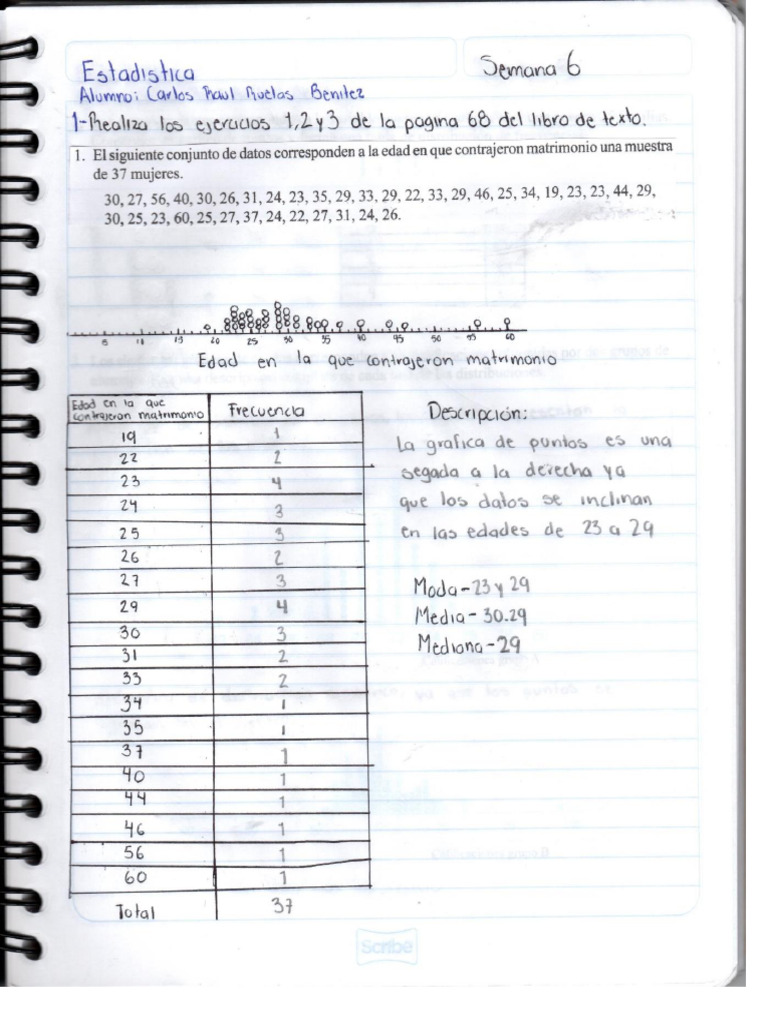 Estadistica
Semana 6
Alumno: Carlos Raul Ruelas Benitez
1-Realiza los ejercicios 1,2 y 3 de la pagina 68 del libro de texto.
1. El siguiente conjunto de datos corresponden a la edad en que contrajeron matrimonio una muestra
de 37 mujeres.
30, 27, 56, 40, 30, 26, 31, 24, 23, 35, 29, 33, 29, 22, 33, 29, 46, 25, 34, 19, 23, 23, 44, 29,
30, 25, 23, 60, 25, 27, 37, 24, 22, 27, 31, 24, 26.
5 10 15 20 25 30 35 40 45 50 55 60
Edad en la que contrajeron matrimonio
Edad en la que
contrajeron matrimonio Frecuencia
19 1
22 2
23 4
24 3
25 3
26 2
27 3
29 4
30 3
31 2
33 2
34 1
35 1
37 1
40 1
44 1
46 1
56 1
60 1
Total 37
Descripción:
La grafica de puntos es una
segada a la derecha ya
que los datos se inclinan
en las edades de 23 a 29
Moda-23 y 29
Media-30.29
Mediana-29
Scribe